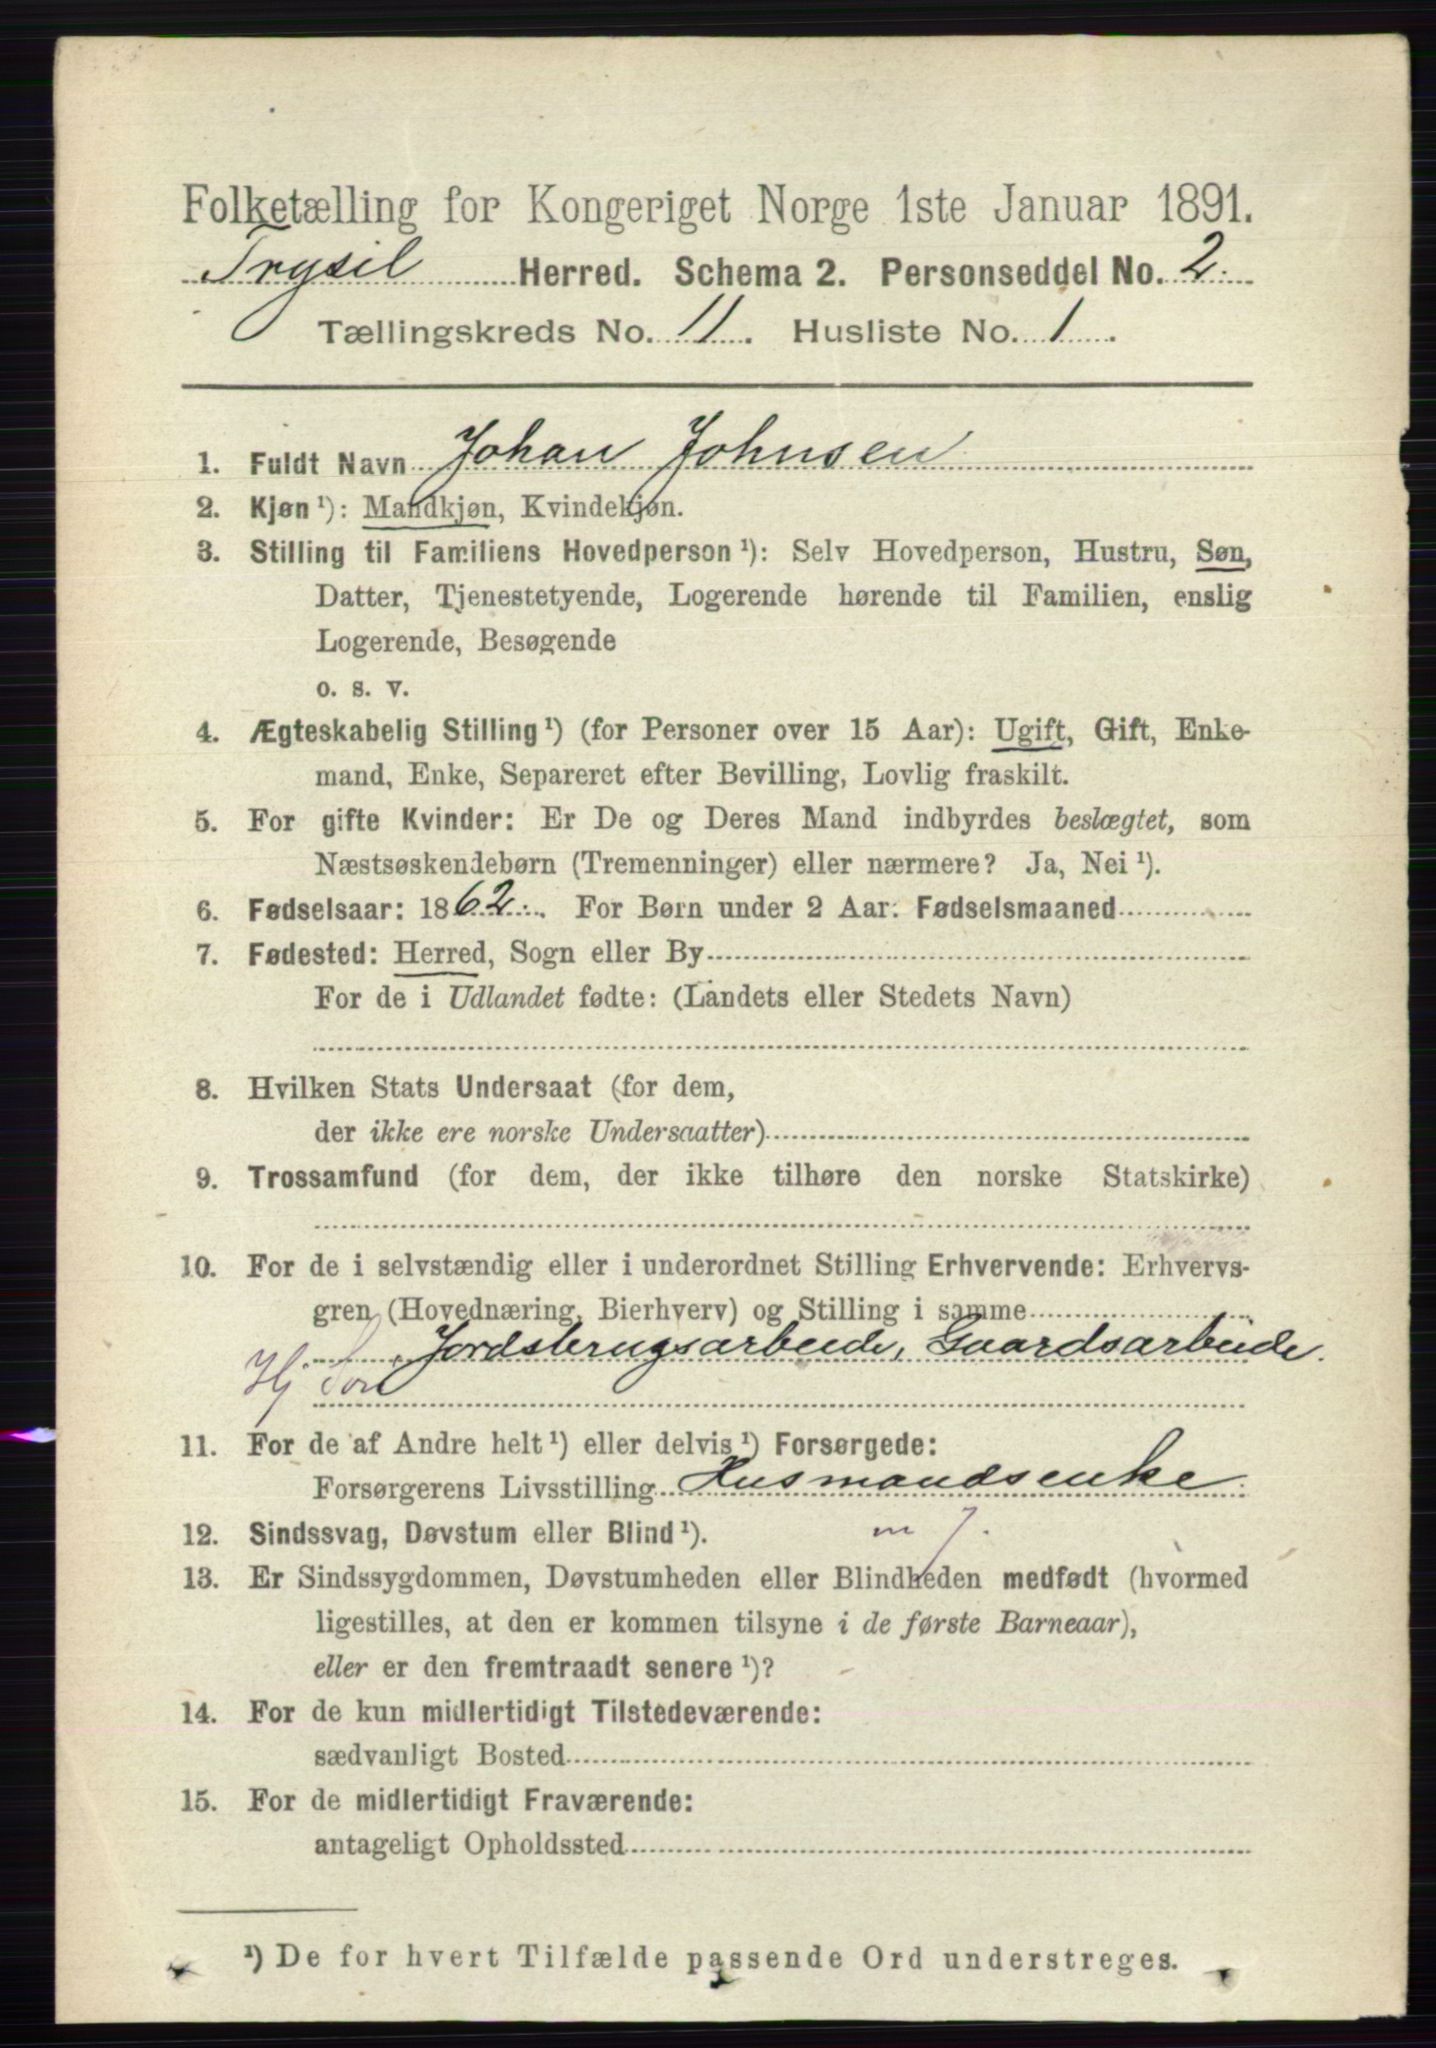 Folketælling for Kongeriget Norge 1ste Januar 1891.
Trysil Herred. Schema 2. Personseddel No. 2.
Tællingskreds No. 11. Husliste No. 1.
1. Fuldt Navn Johan Johnsen
2. Kjøn ¹): Mandkjøn, Kvindekjøn.
3. Stilling til Familiens Hovedperson ¹): Selv Hovedperson, Hustru, Søn,
Datter, Tjenestetyende, Logerende hørende til Familien, enslig
Logerende, Besøgende
o. s. v.
4. Ægteskabelig Stilling ¹) (for Personer over 15 Aar): Ugift, Gift, Enke-
mand, Enke, Separeret efter Bevilling, Lovlig fraskilt.
5. For gifte Kvinder: Er De og Deres Mand indbyrdes beslægtet, som
Næstsøskendebørn (Tremenninger) eller nærmere? Ja, Nei ¹).
6. Fødselsaar: 1862. For Børn under 2 Aar: Fødselsmaaned
7. Fødested: Herred, Sogn eller By
For de i Udlandet fødte: (Landets eller Stedets Navn)
8. Hvilken Stats Undersaat (for dem,
der ikke ere norske Undersaatter)
9. Trossamfund (for dem, der ikke tilhøre den norske Statskirke)
10. For de i selvstændig eller i underordnet Stilling Erhvervende: Erhvervs-
gren (Hovednæring, Bierhverv) og Stilling i samme
Jordsbrugsarbeide, Gaardsarbeide.
Hj Søn
11. For de af Andre helt ¹) eller delvis ¹) Forsørgede:
Forsørgerens Livsstilling Husmandsenke.
m J.
12. Sindssvag, Døvstum eller Blind ¹).
13. Er Sindssygdommen, Døvstumheden eller Blindheden medfødt (hvormed
ligestilles, at den er kommen tilsyne i de første Barneaar),
eller er den fremtraadt senere ¹)?
14. For de kun midlertidigt Tilstedeværende:
sædvanligt Bosted
15. For de midlertidigt Fraværende:
antageligt Opholdssted
¹) De for hvert Tilfælde passende Ord understreges.